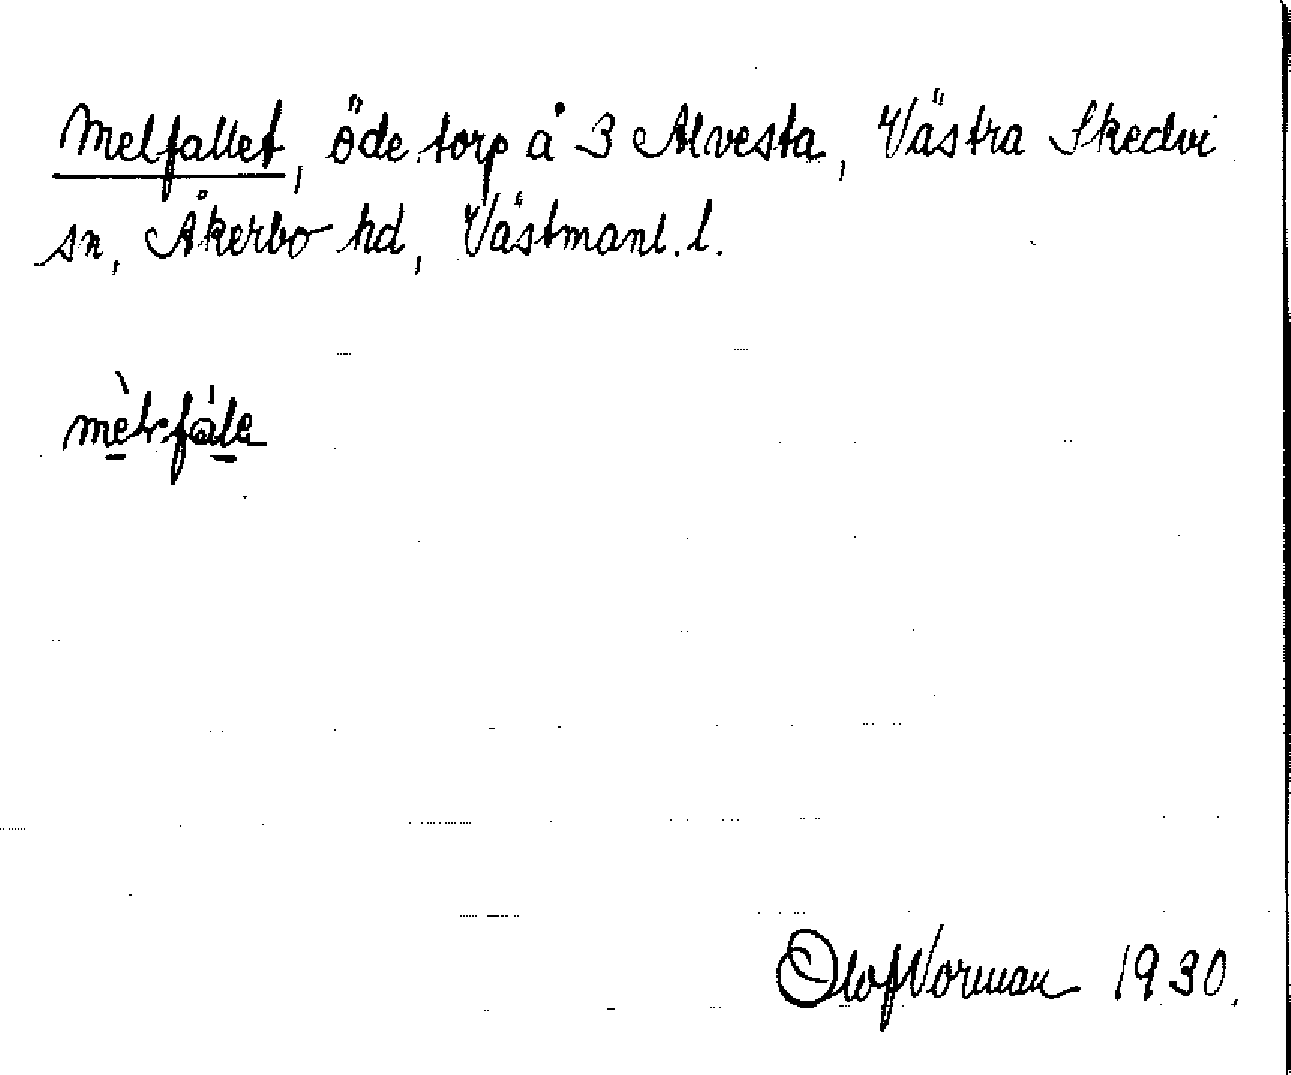 Melfallet, öde torp å 3 Alvesta, Västra Skedvi
sn, Åkerbo hd, Västmanl. l.
Olof Norman 1930.